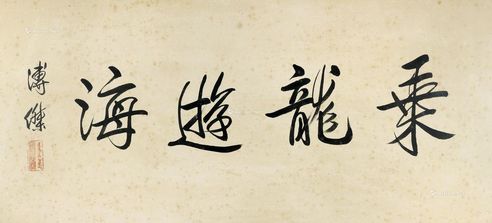 乗龍遊海
溥傑